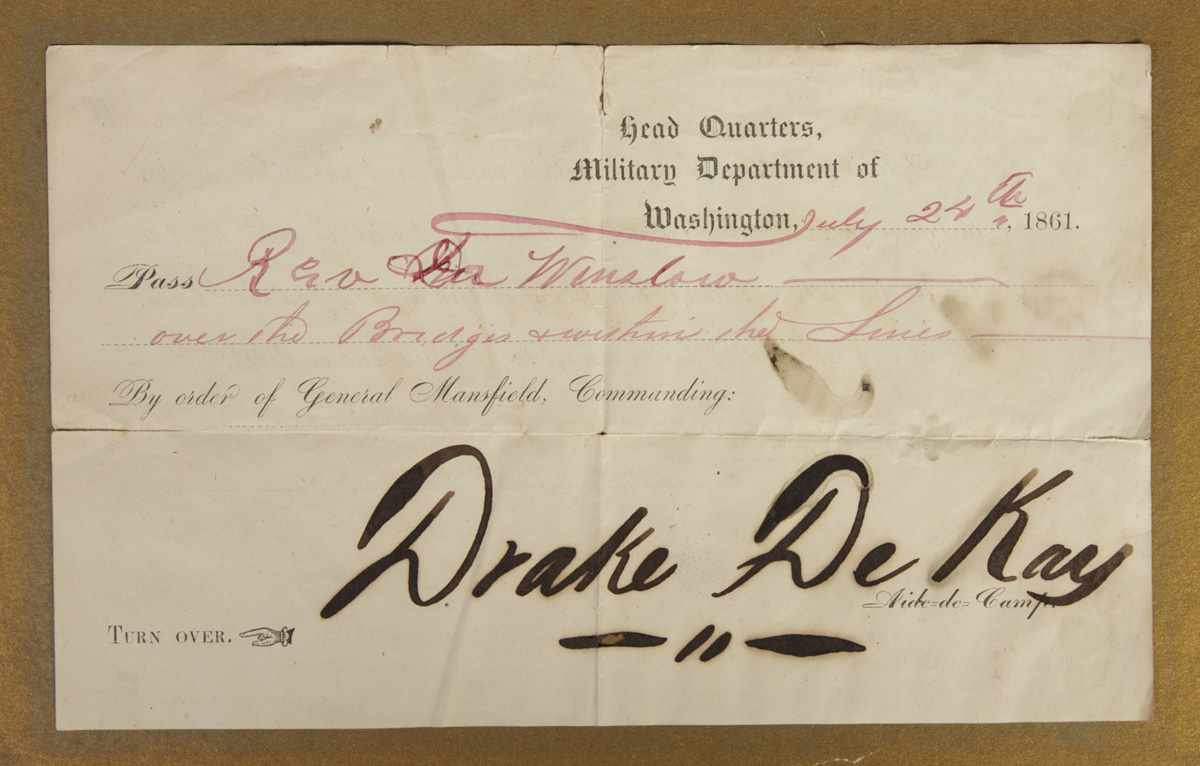 Head Quarters,
Military Department of
Washington, July 24th, 1861.
Pass Rev Dr Winslow
over the Bridges & within the Lines
By order of General Mansfield, Commanding:
Drake De Kay
Aide-de-Camp.
TURN OVER.